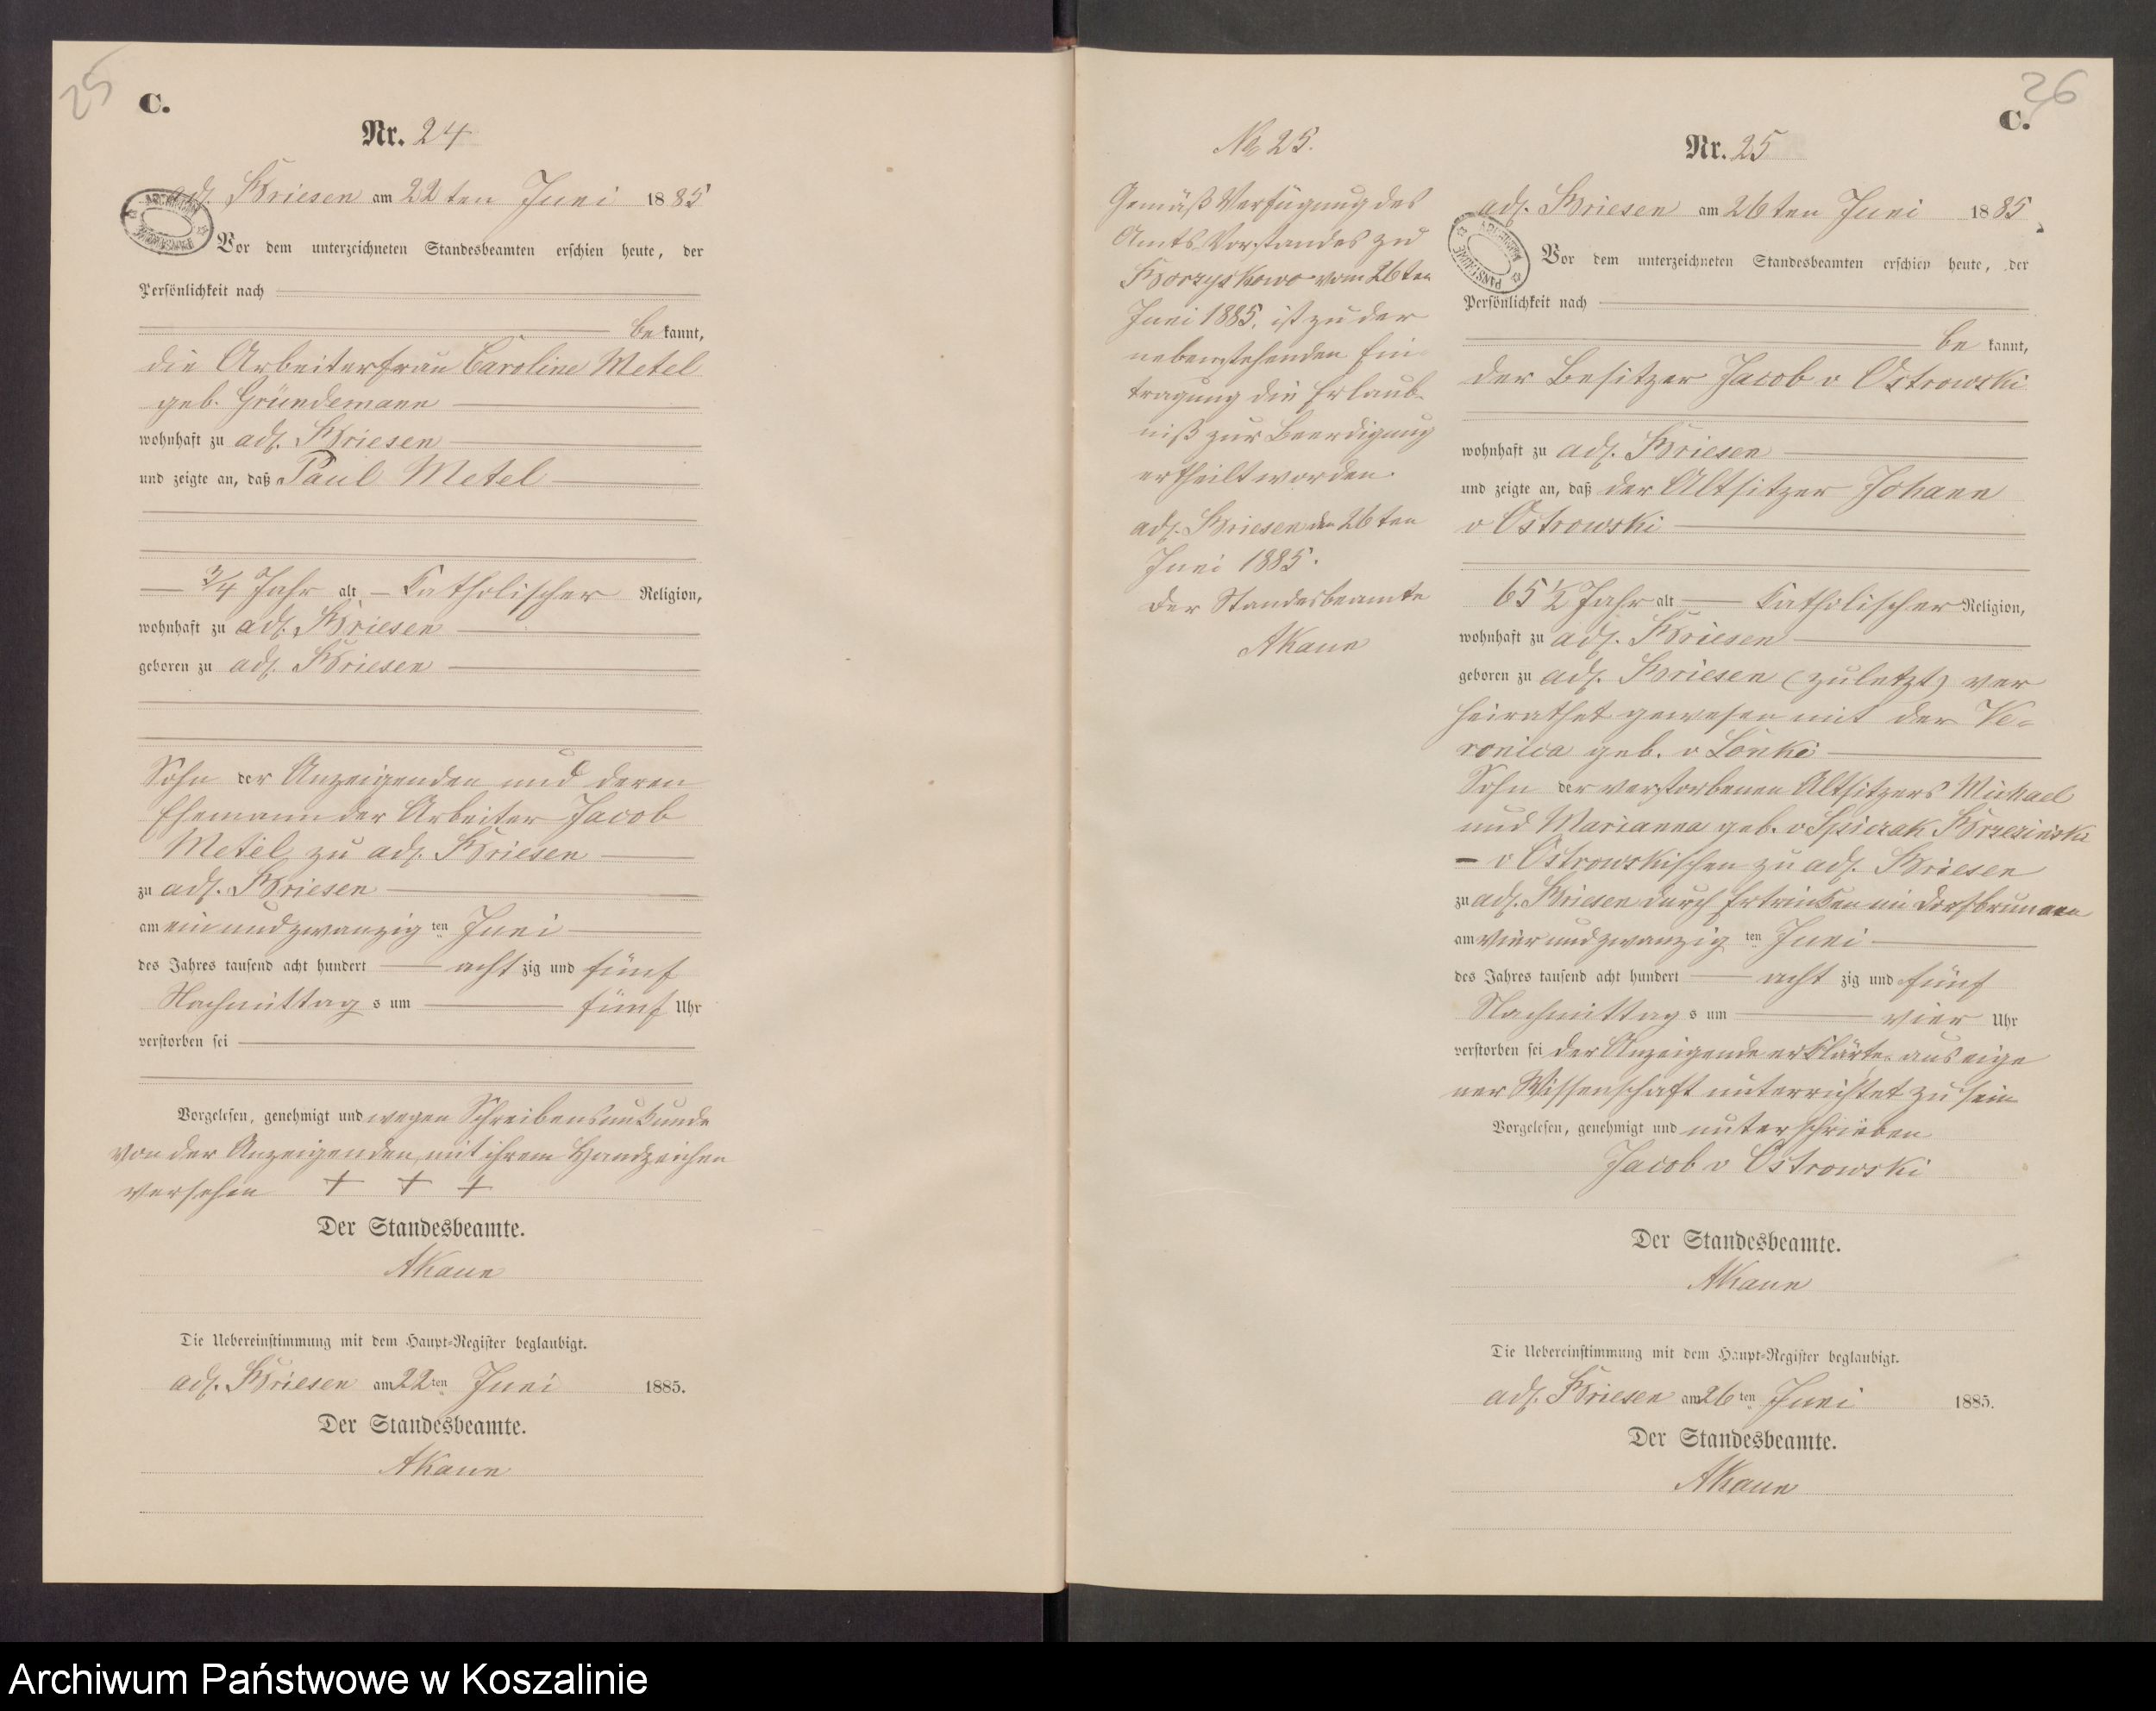 25
C.
Nr. 24
adl. Briesen am 22ten Juni 1885
Vor dem unterzeichneten Standesbeamten erschien heute, der
Persönlichkeit nach
be kannt,
die Arbeiterfrau Caroline Metel
geb. Gründemann
wohnhaft zu adl. Briesen
und zeigte an, daß Paul Metel
3/4 Jahr alt, Katholischer Religion,
wohnhaft zu adl. Briesen
geboren zu adl. Briesen
Sohn der Anzeigenden und deren
Ehemann der Arbeiter Jacob
Metel zu adl. Briesen
zu adl. Briesen
am einundzwanzig ten Juni
des Jahres tausend acht hundert acht zig und fünf
Nachmittag s um fünf Uhr
verstorben sei
Vorgelesen, genehmigt und wegen Schreibensunkunde
von der Anzeigenden mit ihrem Handzeichen
versehen + + +
Der Standesbeamte.
AKaun
Die Uebereinstimmung mit dem Haupt-Register beglaubigt.
adl. Briesen am 22ten Juni 1885.
Der Standesbeamte.
AKaun
No 25.
Gemäß Verfügung des
Amts Vorstandes zu
Borzyskowo vom 26ten
Juni 1885. ist zu der
nebenstehenden Ein
tragung die Erlaub-
niß zur Beerdigung
ertheilt worden.
adl. Briesen den 26ten
Juni 1885.
Der Standesbeamte
AKaun
26
C.
Nr. 25
adl. Briesen am 26ten Juni 1885
Vor dem unterzeichneten Standesbeamten erschien heute, der
Persönlichkeit nach
be kannt,
der Besitzer Jacob v Ostrowski
wohnhaft zu adl. Briesen
und zeigte an, daß der Altsitzer Johann
v Ostrowski
65 1/2 Jahr alt Katholischer Religion,
wohnhaft zu adl. Briesen
geboren zu adl. Briesen (zuletzt) ver
heirathet gewesen mit der Ve-
ronica geb. v Lonki
Sohn der verstorbenen Altsitzers Michael
und Marianna geb. v Spiczak Brzezinski
– v Ostrowskischen zu adl. Briesen
zu adl. Briesen durch Ertrinken im Dorfbrunnen
am vierundzwanzig ten Juni
des Jahres tausend acht hundert acht zig und fünf
Nachmittag s um vier Uhr
verstorben sei der Anzeigende erklärte aus eige
ner Wissenschaft unterrichtet zu sein
Vorgelesen, genehmigt und unterschrieben
Jacob v Ostrowski
Der Standesbeamte.
AKaun
Die Uebereinstimmung mit dem Haupt-Register beglaubigt.
adl. Briesen am 26ten Juni 1885.
Der Standesbeamte.
AKaun
Archiwum Państwowe w Koszalinie